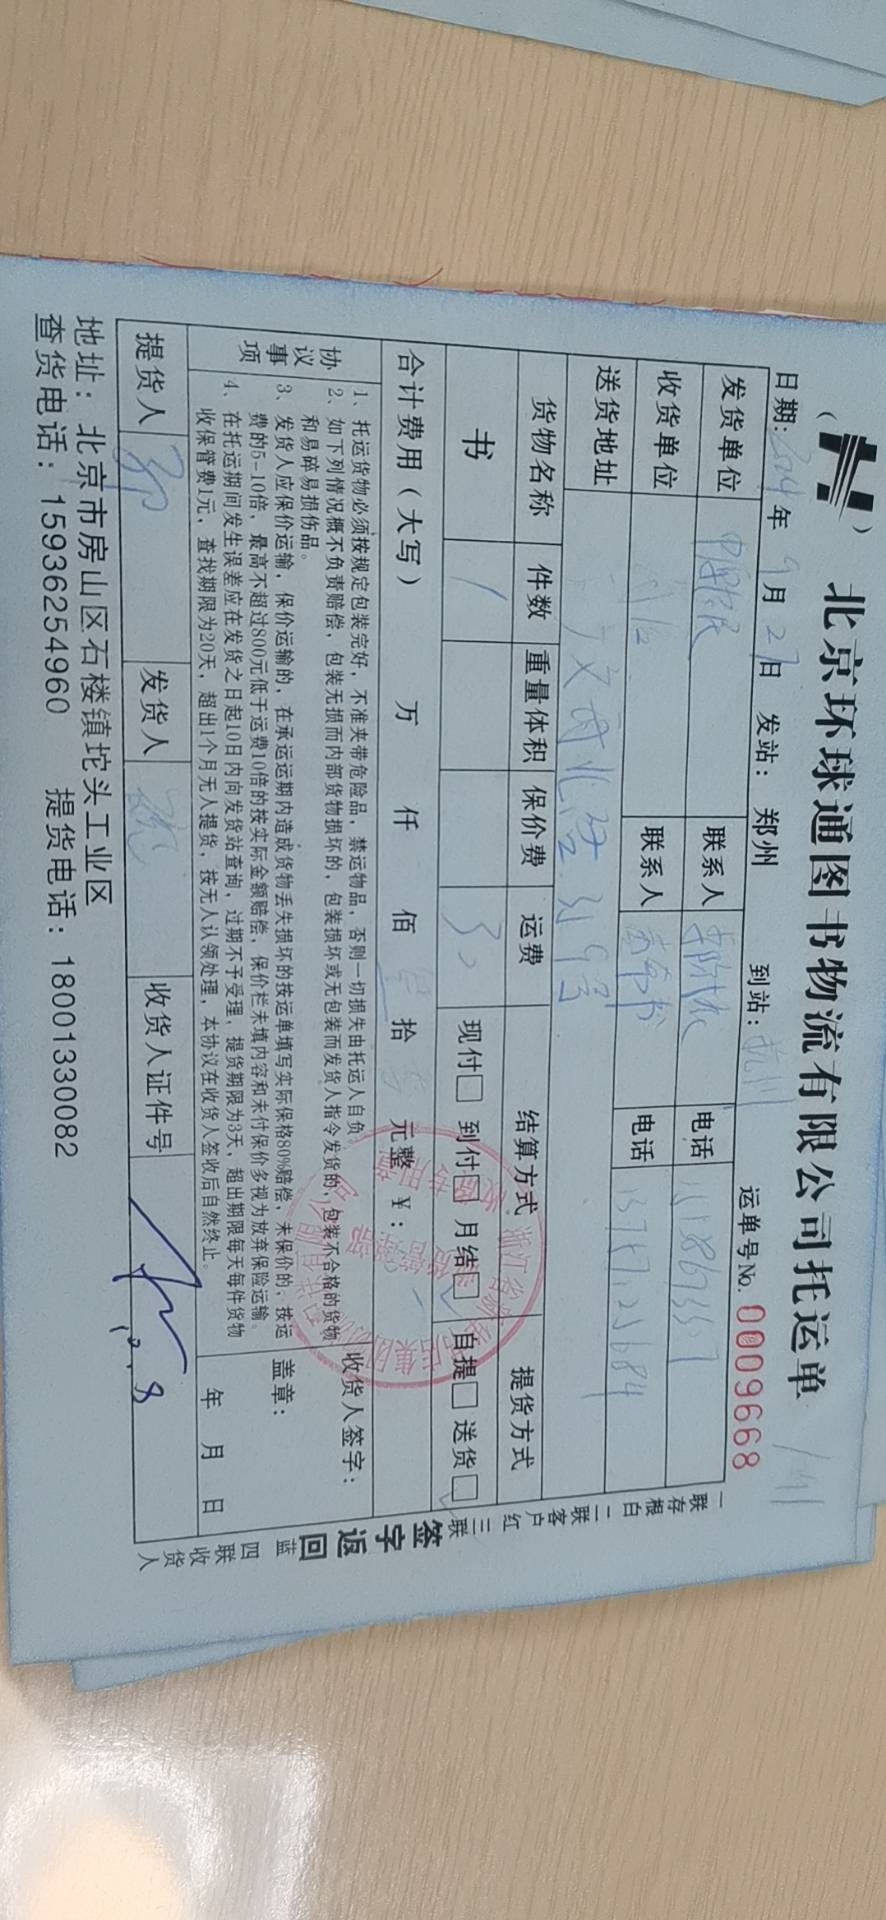 北京环球通图书物流有限公司托运单
日期: 2024 年 9 月 27 日 发站: 郑州 到站: 杭州 运单号No. 0009668
发货单位 联系人 电话
收货单位 联系人 电话
送货地址
货物名称 件数 重量体积 保价费 运费 结算方式 提货方式
书 1 30 现付□ 到付□ 月结□ 自提□ 送货□
合计费用(大写) 万 仟 佰 拾 元整 ¥:
协议事项
1、托运货物必须按规定包装完好,不准夹带危险品,禁运物品,否则一切损失由托运人自负。
2、如下列情况概不负责赔偿,包装无损而内部货物损坏的,包装损坏或无包装而发货人指令发货的,包装不合格的货物
和易碎易损伤品。
3、发货人应保价运输,保价运输的,在承运运期内造成货物丢失损坏的按运单填写实际保格80%赔偿,未保价的,按运
费的5-10倍,最高不超过800元低于运费10倍的按实际金额赔偿,保价栏未填内容和未付保价多视为放弃保险运输。
4、在托运期间发生误差应在发货之日起10日内向发货站查询,过期不予受理,提货期限为3天,超出期限每天每件货物
收保管费1元,查找期限为20天,超出1个月无人提货,按无人认领处理,本协议在收货人签收后自然终止。
收货人签字:
盖章:
年 月 日
提货人 发货人 收货人证件号
10.8
地址:北京市房山区石楼镇坨头工业区
查货电话:15936254960 提货电话:18001330082
一联存根白 二联客户红 三联签字返回蓝 四联收货人